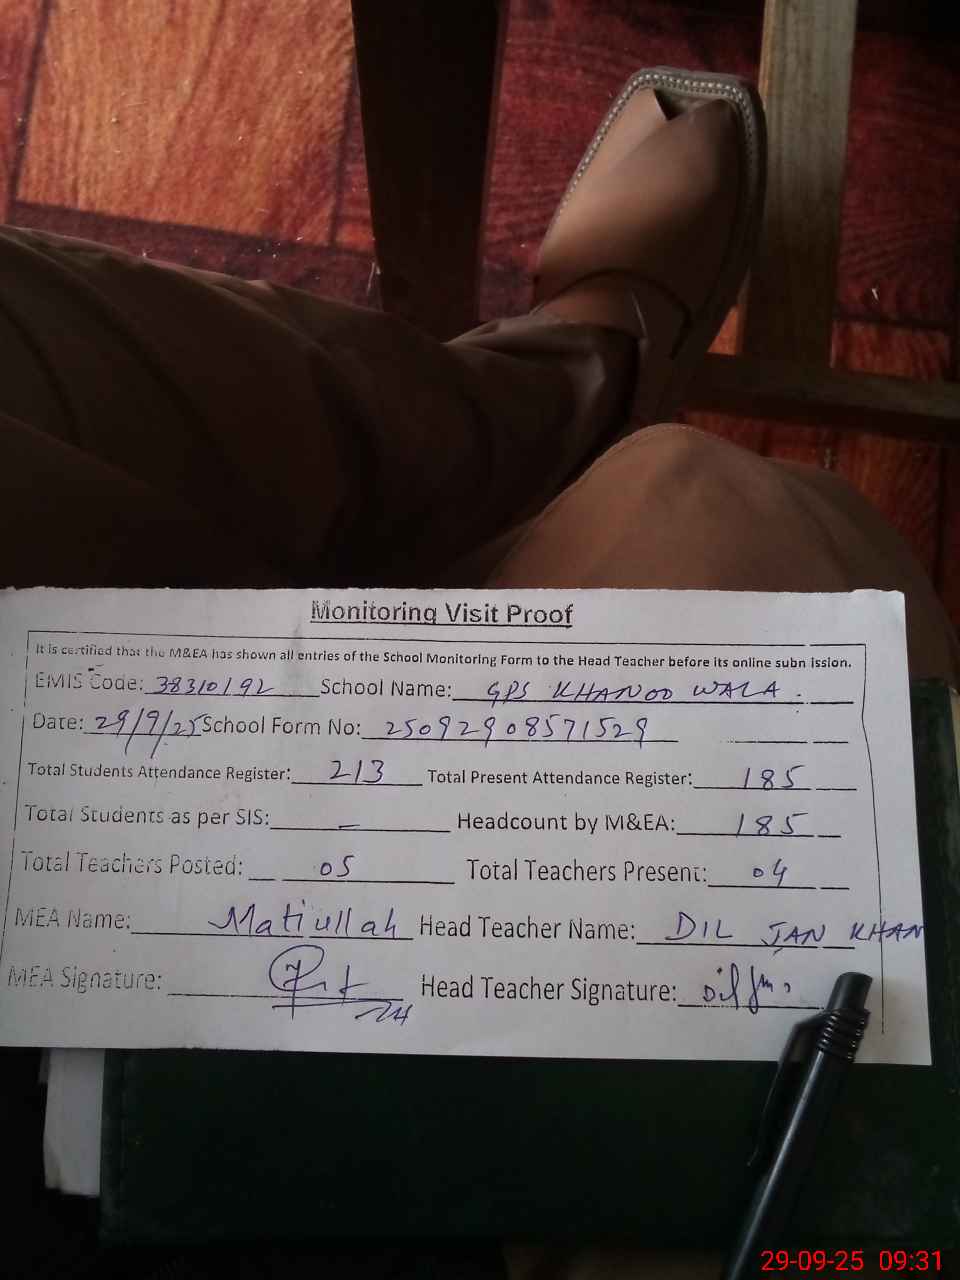 Monitoring Visit Proof
It is certified that the M&EA has shown all entries of the School Monitoring Form to the Head Teacher before its online subn ission.
EMIS Code: 38310192 School Name: GPS KHANOO WALA.
Date: 29/9/25 School Form No: 25092908571529
Total Students Attendance Register: 213 Total Present Attendance Register: 185
Total Students as per SIS: – Headcount by M&EA: 185
Total Teachers Posted: 05 Total Teachers Present: 04
MEA Name: Matiullah Head Teacher Name: DIL JAN KHAN
MEA Signature: Head Teacher Signature:
29-09-25 09:31